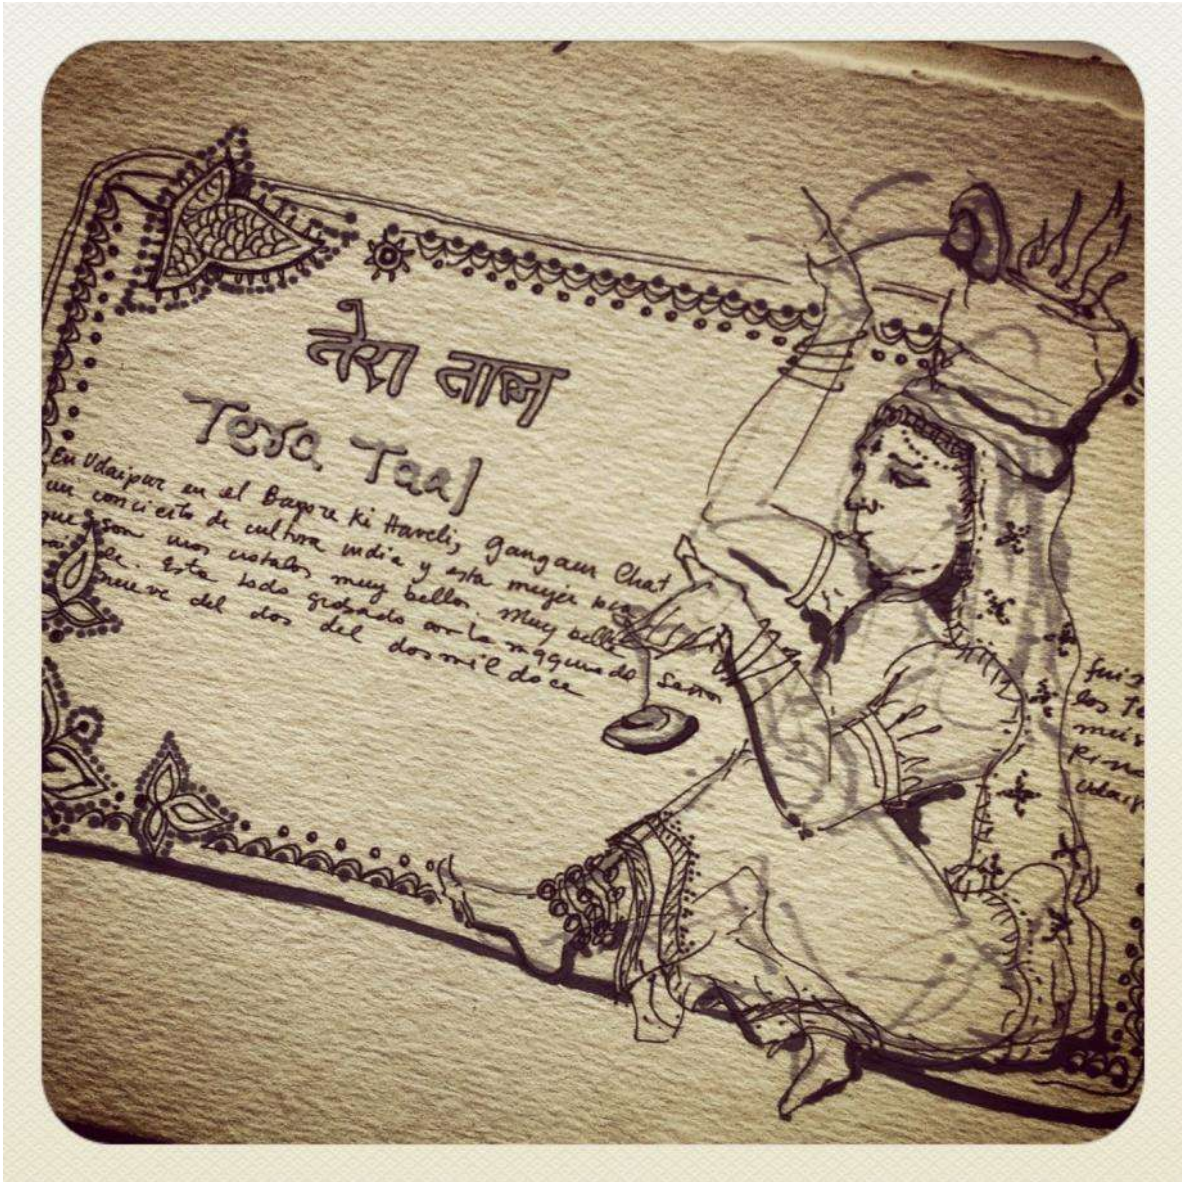 तेरा ताल
Tera Taal
En Udaipur en el Bagore Ki Haveli, Gangaur Ghat
un concierto de cultura india y esta mujer
que son unos muy bellos. Muy bella
de. Esta todo grabado con la maquina de
nueve del dos del dos mil doce
los